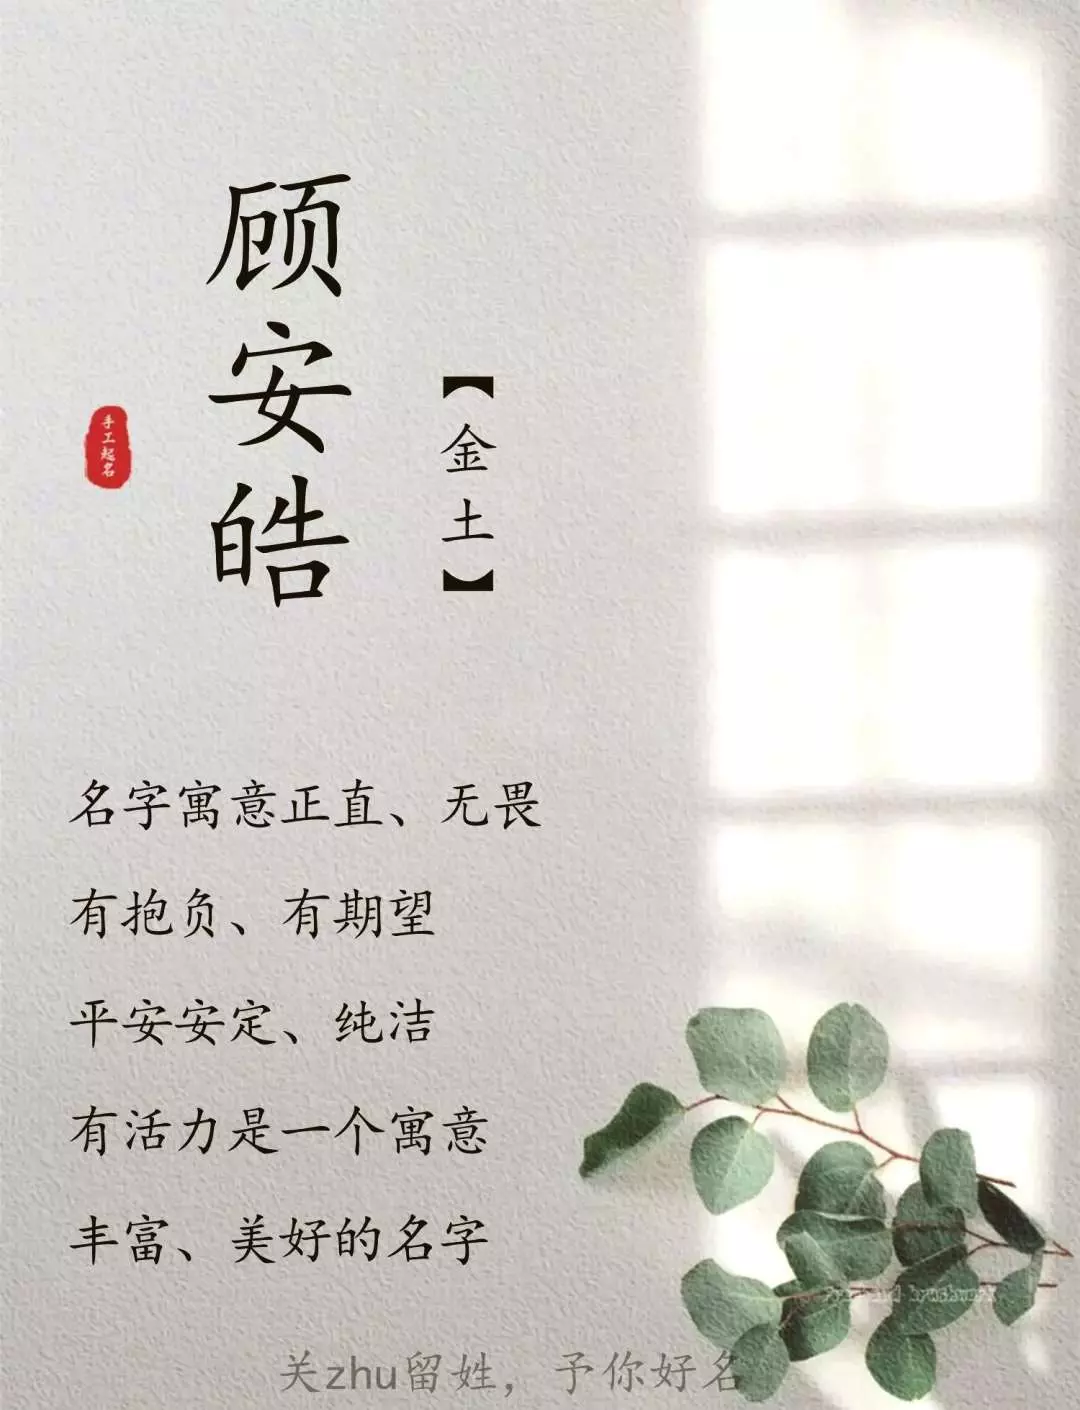 顾安皓
【金土】
手工起名
名字寓意正直、无畏
有抱负、有期望
平安安定、纯洁
有活力是一个寓意
丰富、美好的名字
关zhu留姓，予你好名